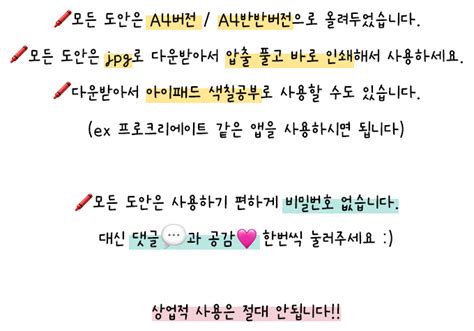 모든 도안은 A4버전 / A4반반버전으로 올려두었습니다.
모든 도안은 jpg로 다운받아서 압출 풀고 바로 인쇄해서 사용하세요.
다운받아서 아이패드 색칠공부로 사용할 수도 있습니다.
(ex 프로크리에이트 같은 앱을 사용하시면 됩니다)
모든 도안은 사용하기 편하게 비밀번호 없습니다.
대신 댓글💬과 공감💗 한번씩 눌러주세요 :)
상업적 사용은 절대 안됩니다!!